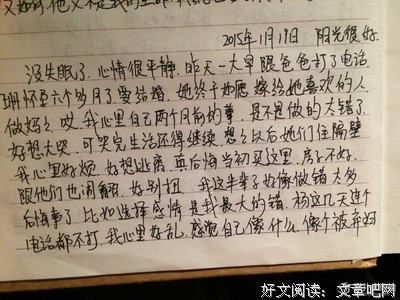 2015年1月17日 阳光很好.
没失眠了.心情很平静.昨天一大早跟爸爸打了电话
珊怀孕六个岁月了.要结婚.她终于如愿嫁给她喜欢的人
做妈么.哎.我心里自己两个月前的事,是不是做的太错了.
好想大哭,可哭完生活还得继续.想么以后她们住隔壁
我心里好烦.好想逃离.真后悔当初买这里.房子不好.
跟他们也闹翻.好别扭 我这半辈子好像做错太多
后悔事了 比如选择感情是我最大的错.杨这几天连个
电话都不打.我心里好乱.感觉自己像什么.像个被弃妇
好文阅读:文章吧网